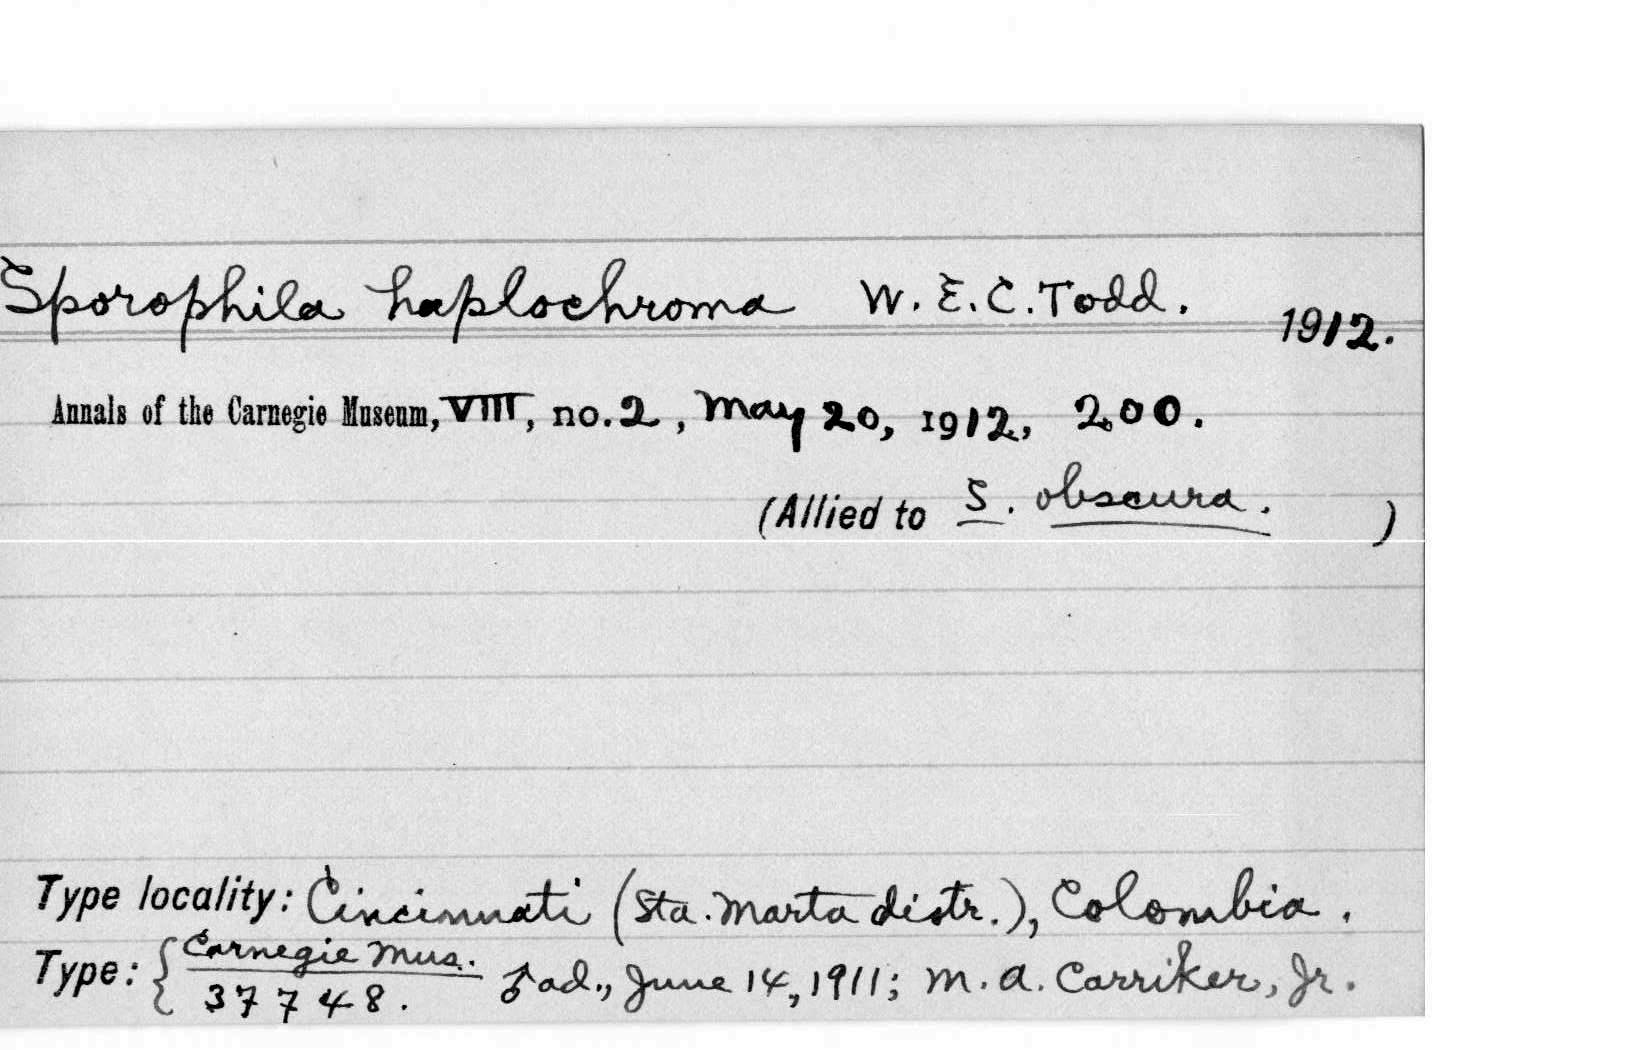 Sporophila haplochroma W. E. C. Todd. 1912.
Annals of the Carnegie Museum, VIII, no. 2, May 20, 1912, 200.
(Allied to S. obscura. )
Type locality: Cincinnati (Sta. Marta distr.), Colombia.
Type: { Carnegie Mus. 37748. ♂ ad., June 14, 1911; M. A. Carriker, Jr.